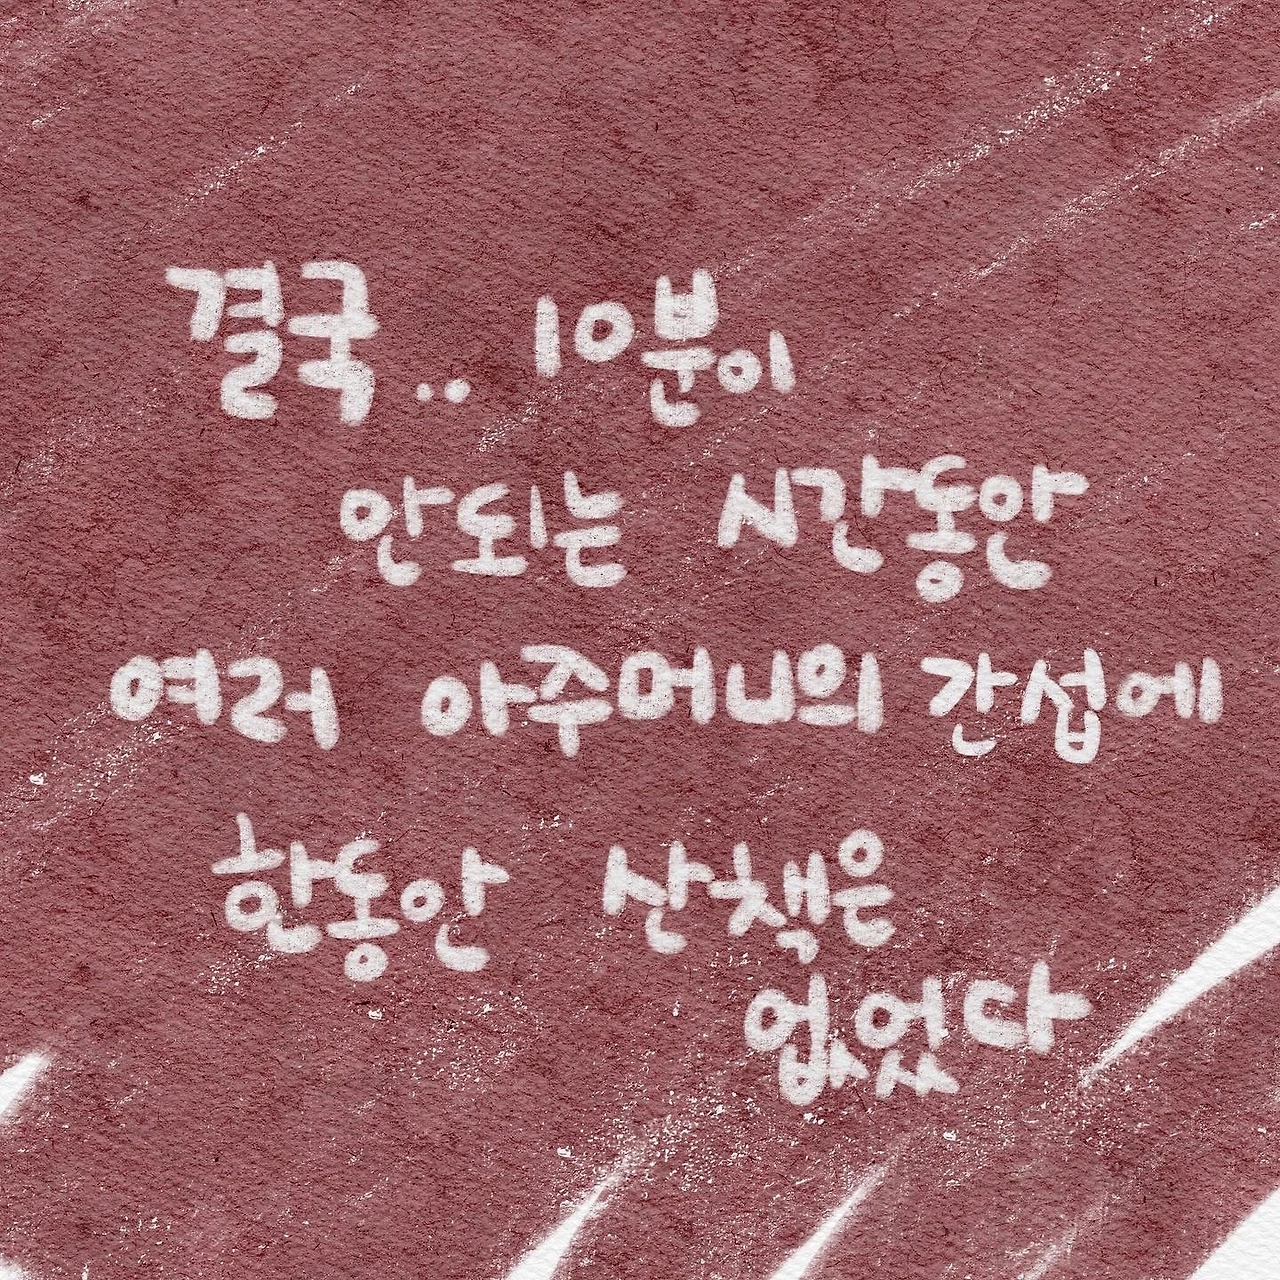 결국.. 10분이
안되는 시간동안
여러 아주머니의 간섭에
한동안 산책은
없었다